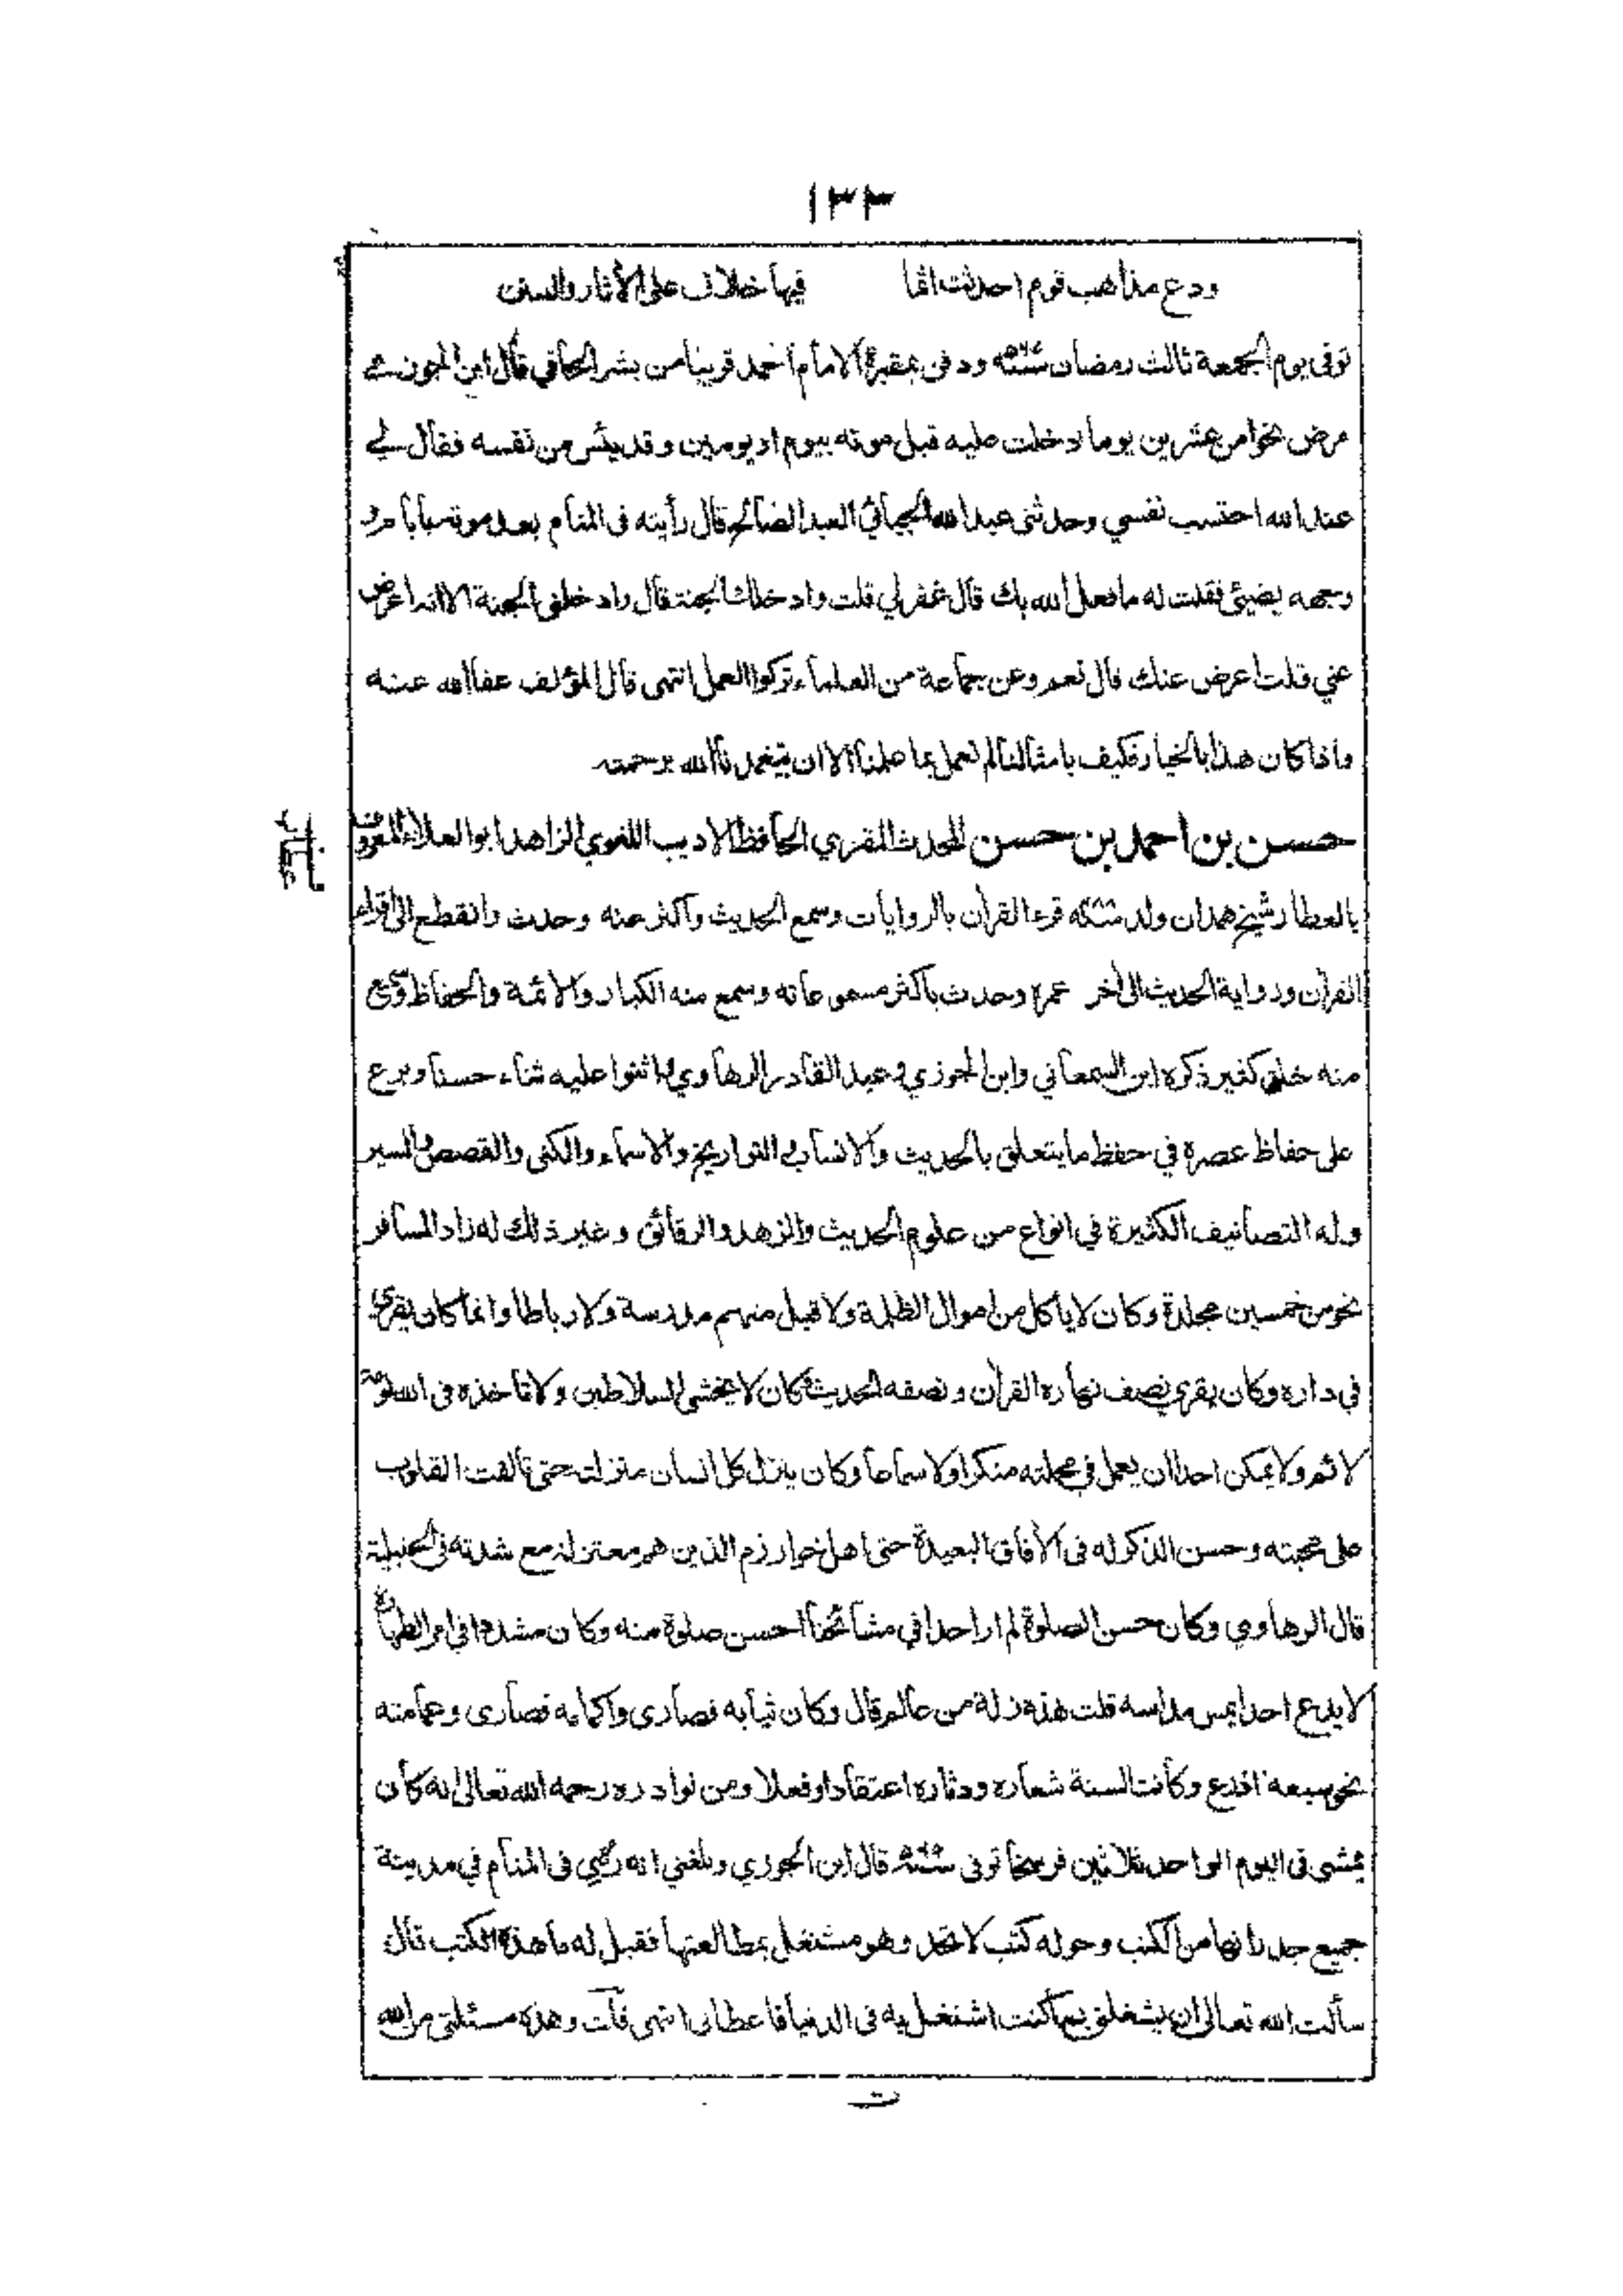 ١٣٣
ودع مذاهب قوم احدثت اثما فيها خلاف على الأثار والسنن
توفى يوم الجمعة ثالث رمضان ودفن بمقبرة الامام احمد قريبا من بشر الحافي قال ابن الجوزي
مرض نحوا من عشرين يوما دخلت عليه قبل موته بيوم او يومين وقد يئس من نفسه فقال لي
عند الله احتسب نفسي وحدثنى عبد الله الجبائي العبد الصالح قال رأيته فى المنام بعد موته
وجهه يضيئ فقلت له ما فعل الله بك قال غفر لي قلت وادخلك الجنة قال وادخلنى الجنة الا انه اعرض
عني قلت اعرض عنك قال نعم وعن جماعة من العلماء تركوا العمل انتهى قال المؤلف عفا الله عنه
واذا كان هذا بالخيار فكيف بامثالنا لم نعمل بما علمنا الا ان يتغمدنا الله برحمته
حسن بن احمد بن حسن المحدث المقري الحافظ الاديب اللغوي الزاهد ابو العلاء المعروف
بالعطار شيخ همدان ولد قرء القرأن بالروايات وسمع الحديث واكثر عنه وحدث وانقطع الى اقراء
القرأن ورواية الحديث الى أخر عمره وحدث باكثر مسموعاته وسمع منه الكبار والائمة والحفاظ
منه خلق كثير ذكره ابن السمعاني وابن الجوزي وعبد القادر الرهاوي واثنوا عليه ثناء حسنا وبرع
على حفاظ عصره في حفظ ما يتعلق بالحديث والانساب والتواريخ والاسماء والكنى والقصص والسير
وله التصانيف الكثيرة في انواع من علوم الحديث والزهد والرقائق وغير ذلك له زاد المسافر
نحو من خمسين مجلدة وكان لا ياكل من اموال الظلمة ولا قبل منهم مدرسة ولا رباطا وانما كان يقرئ
في داره وكان يقري نصف نهاره القرأن ونصفه الحديث وكان لا يخشى السلاطين ولا تاخذه فى الله لومة
لائم ولا يمكن احدا ان يعمل في محلته منكرا ولا سماعا وكان ينزل كل انسان منزلته حتى تألفت القلوب
على محبته وحسن الذكر له فى الأفاق البعيدة حتى اهل خوارزم الذين هم معتزلة مع شدته فى الحنبلية
قال الرهاوي وكان حسن الصلوة لم ار احدا في مشائخنا احسن صلوة منه وكان مشددا في امر الطهارة
لا يدع احدا يمس مداسه قلت هذه زلة من عالم قال وكان ثيابه قصارى واكمامه قصارى وعمامته
نحو سبعة اذرع وكانت السنة شعاره ودثاره اعتقادا وفعلا ومن نوادره رحمه الله تعالى انه كان
يمشى فى اليوم الواحد ثلاثين فرسخا توفى قال ابن الجوزي وبلغني انه رئي فى المنام في مدينة
جميع جدرانها من الكتب وحوله كتب لا تحد وهو مشتغل بمطالعتها فقيل له ما هذه الكتب قال
سألت الله تعالى ان يشغلني بما كنت اشتغل به فى الدنيا فاعطانى انتهى قلت وهذه مسئلتى من الله